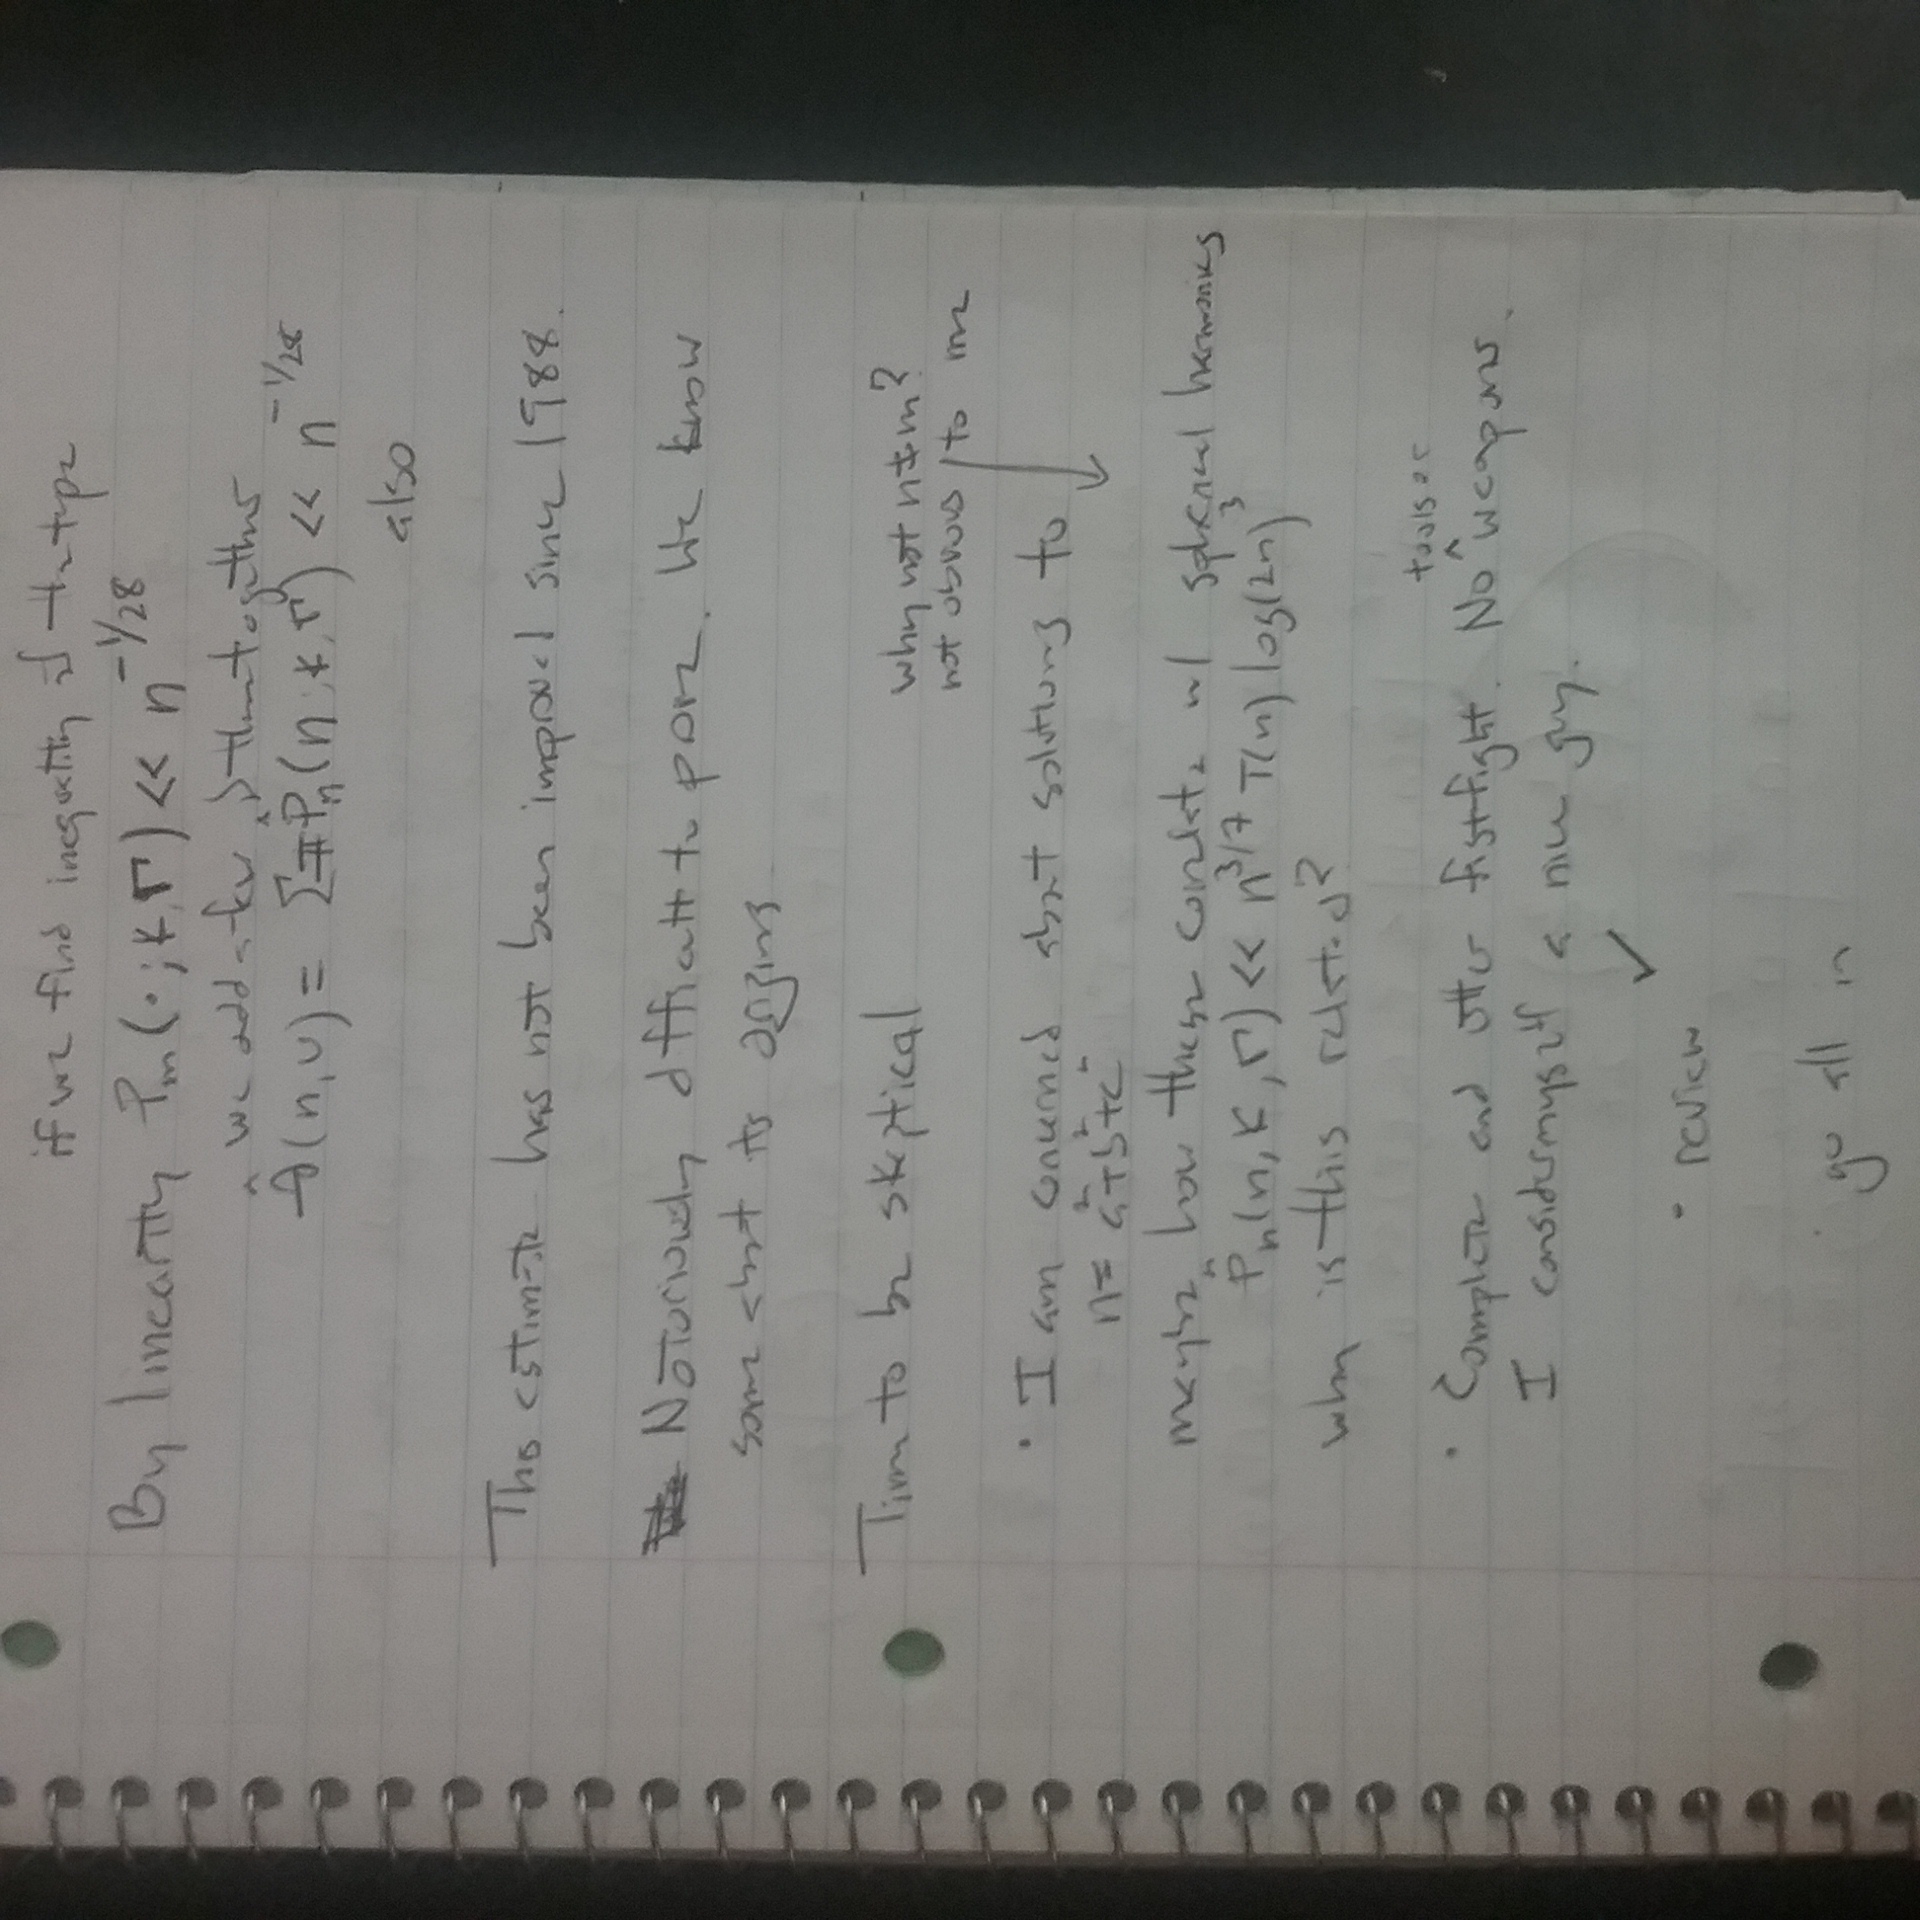 if we find inequality of the type
By linearity P_m(·; k, Γ) << n^{-1/28}
we add a few of them together
θ̂(n, v) = Σ # P_n(n; k, Γ) << n^{-1/28}
also
This estimate has not been improved since 1988.
Notoriously difficult to prove. We know
some about its origins
Time to be skeptical
why not n ≠ m?
not obvious to me
· I am concerned about solutions to
n² = a² + b² + c²
maybe how these correlate w/ spherical harmonics
P_n(n, k, Γ) << n^{3/7} τ(n) log(2n)³
why is this related?
tools or
· Complete and utter fistfight. No ^ weapons.
I consider myself a nice guy.
· review ✓
go all in